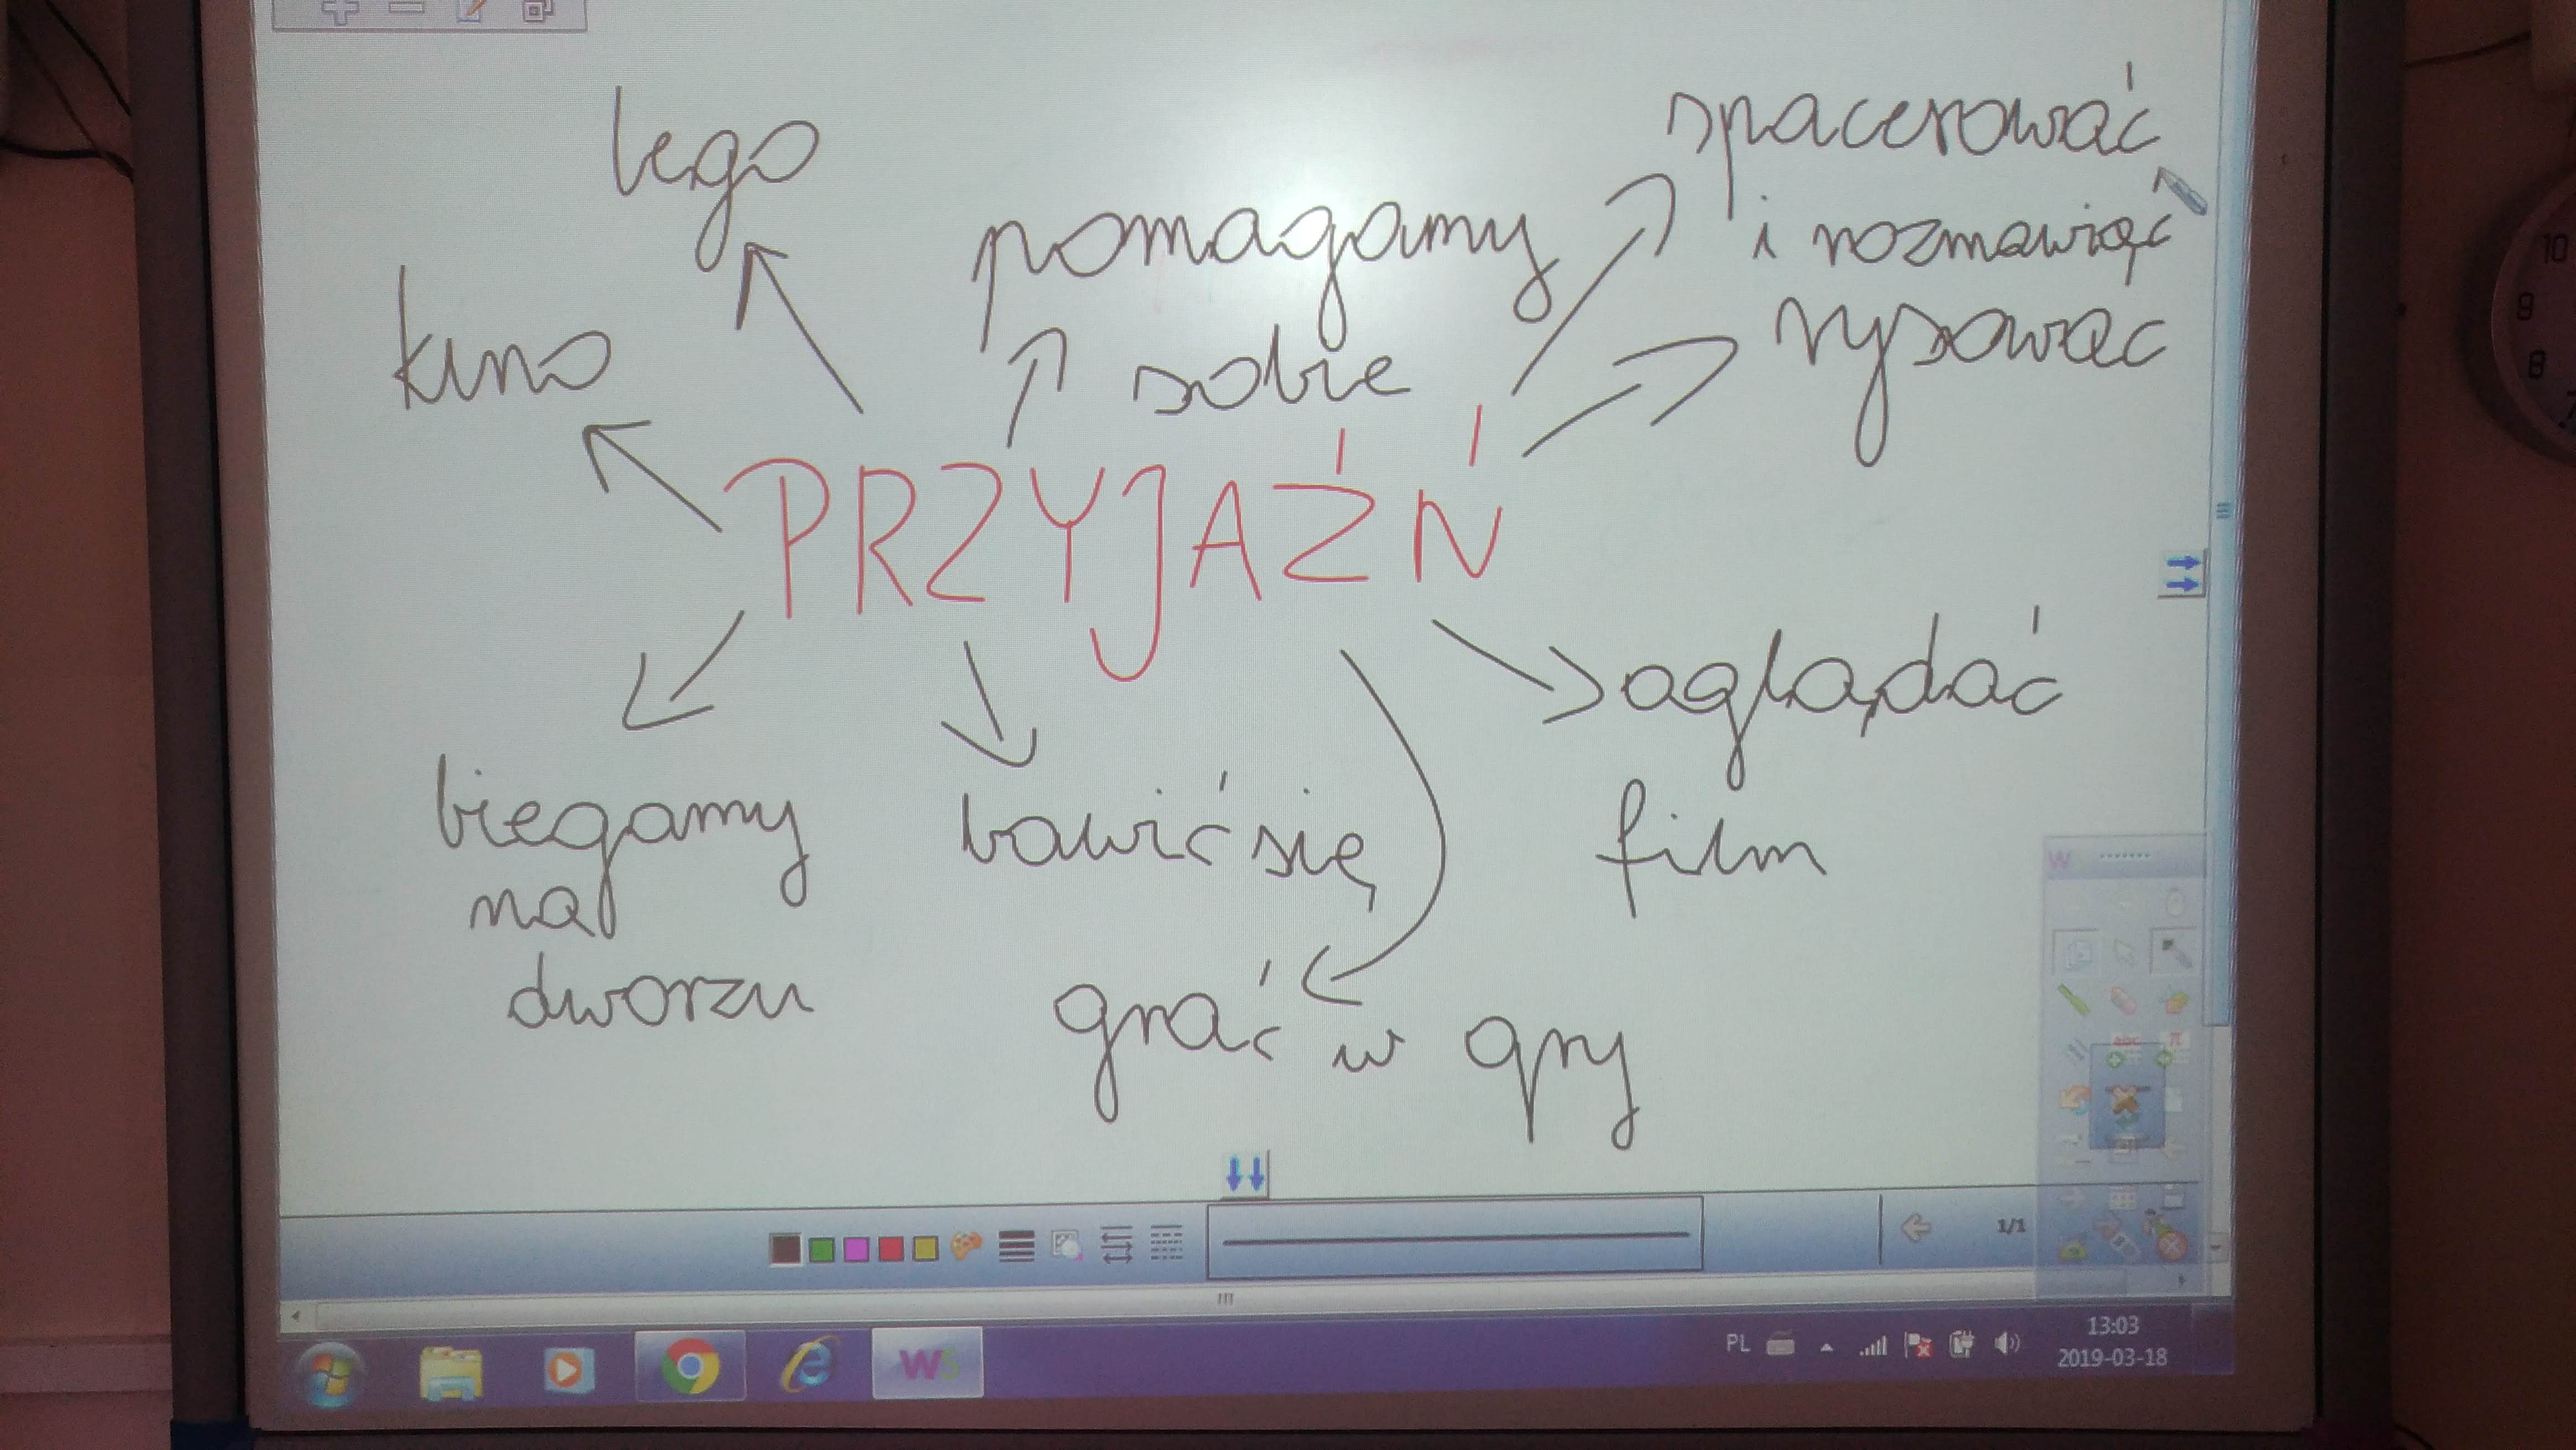 lego
kino
pomagamy
sobie
spacerować
i rozmawiać
rysować
PRZYJAŹŃ
biegamy
na
dworzu
bawić się
grać w gry
oglądać
film
1/1
PL
13:03
2019-03-18
W
abc
π
10
9
8
7